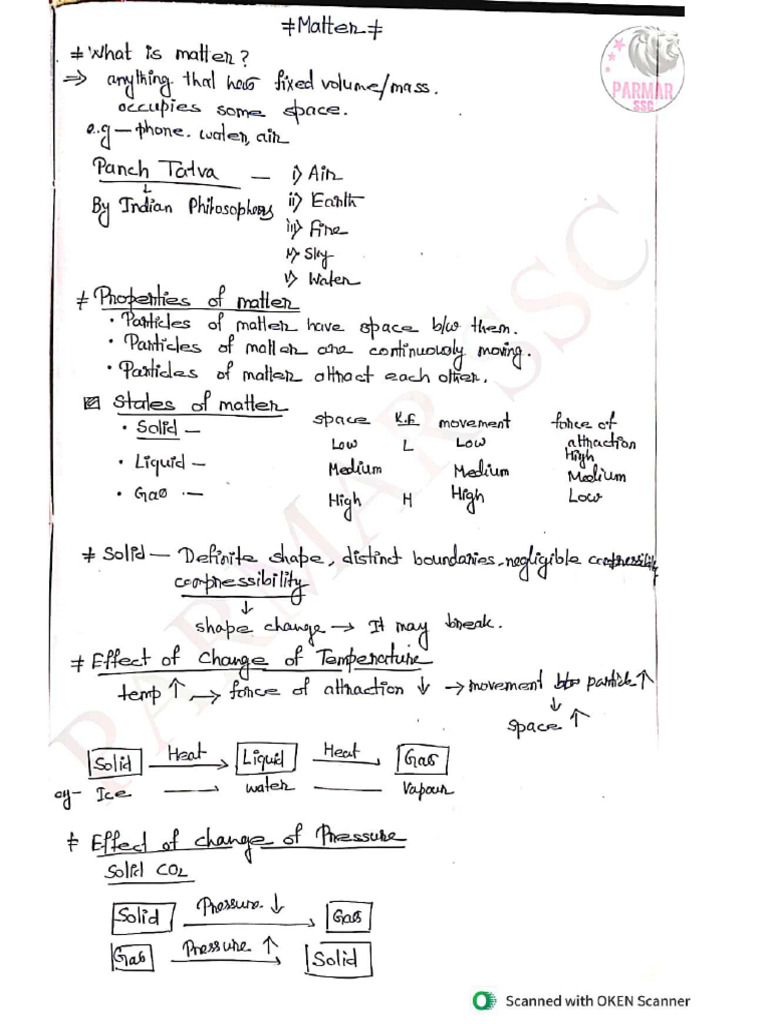 ≠ Matter ≠
PARMAR
SSC
≠ What is matter?
⇒ anything that has fixed volume/mass.
occupies some space.
e.g – phone. water, air
Panch Tatva — i) Air
↓
By Indian Philosophers ii) Earth
iii) Fire
iv) Sky
v) Water
≠ Properties of matter
• Particles of matter have space b/w them.
• Particles of matter are continuously moving.
• Particles of matter attract each other.
States of matter space K.E movement force of attraction
• Solid — Low L Low High
• Liquid — Medium Medium Medium
• Gas — High H High Low
≠ Solid — Definite shape, distinct boundaries, negligible
compressibility
↓
shape change → It may break.
≠ Effect of Change of Temperature
temp ↑ → force of attraction ↓ → movement particle ↑
↓
space ↑
Solid Heat → Liquid Heat → Gas
eg- Ice → water — Vapour
≠ Effect of change of Pressure
Solid CO2
Solid Pressure ↓ → Gas
Gas Pressure ↑ → Solid
PARMAR SSC
Scanned with OKEN Scanner